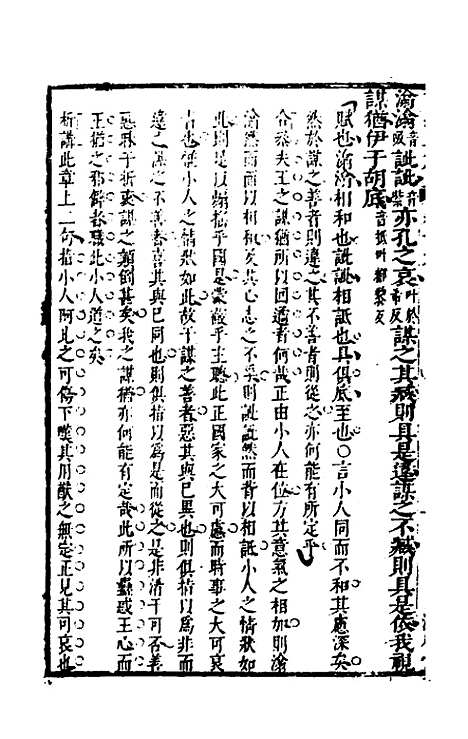 潝潝訿訿亦孔之哀謀之其臧則具是違謀之不臧則具是依我視
謀猶伊于胡底
賦也潝潝相和也訿訿相詆也具俱底至也○言小人同而不和其慮深矣
然於謀之善者則違之其不善者則從之亦何能有所定乎
合叅夫王之謀猶所以回遹者何哉正由小人在位方其意氣之相加則潝
潝然而面以相和及其心志之不孚則訿訿然而背以相詆小人之情狀如
此則是以煽搖乎國是蒙蔽乎主聽此正國家之大可慮而時事之大可哀
者也惟小人之情狀如此故于謀之善者惡其與已異也則俱指以為非而
違之于謀之不善者喜其與已同也則俱指以為是而從之是非淆于可否善
惡昧于折衷謀之顛倒甚矣我之謀猶亦何能有定哉此所以蠱惑王心而
王猶之邪僻者職此小人道之矣
析講此章上二句指小人阿比之可傷下嘆其用猷之無定正見其可哀也